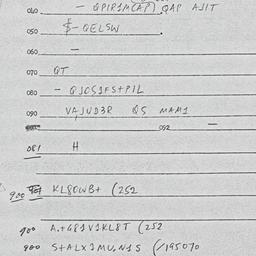 040 - QPIR1M(AP) QAP AJIT
050 $-QELSW
060 -
070 QT
080 - QJCS1FS+PIL
090 VAJUD3R QS MAM1
092 -
081 H
900 KL80WB+ (252
900 A.+G81V1KL8T (252
900 S+ALX1MU,N1S (/195070